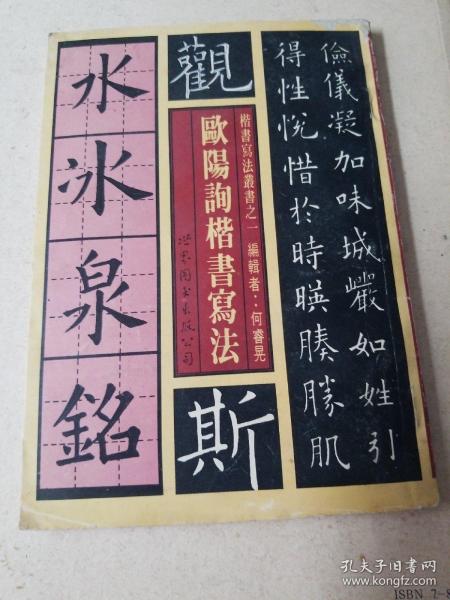 儉儀凝加味城巖如姓引
得性悅惜於時暎腠勝肌
觀
楷書寫法叢書之一 編輯者：何睿晃
歐陽詢楷書寫法
世界图书出版公司
斯
水
氷
泉
銘
孔夫子旧书网
www.kongfz.com
ISBN 7-8